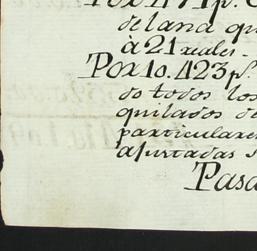 de lana qu
à 21 reales.
Por 10.423 p.
do todos los
quilados de
particulares
ajustadas s
Pasa